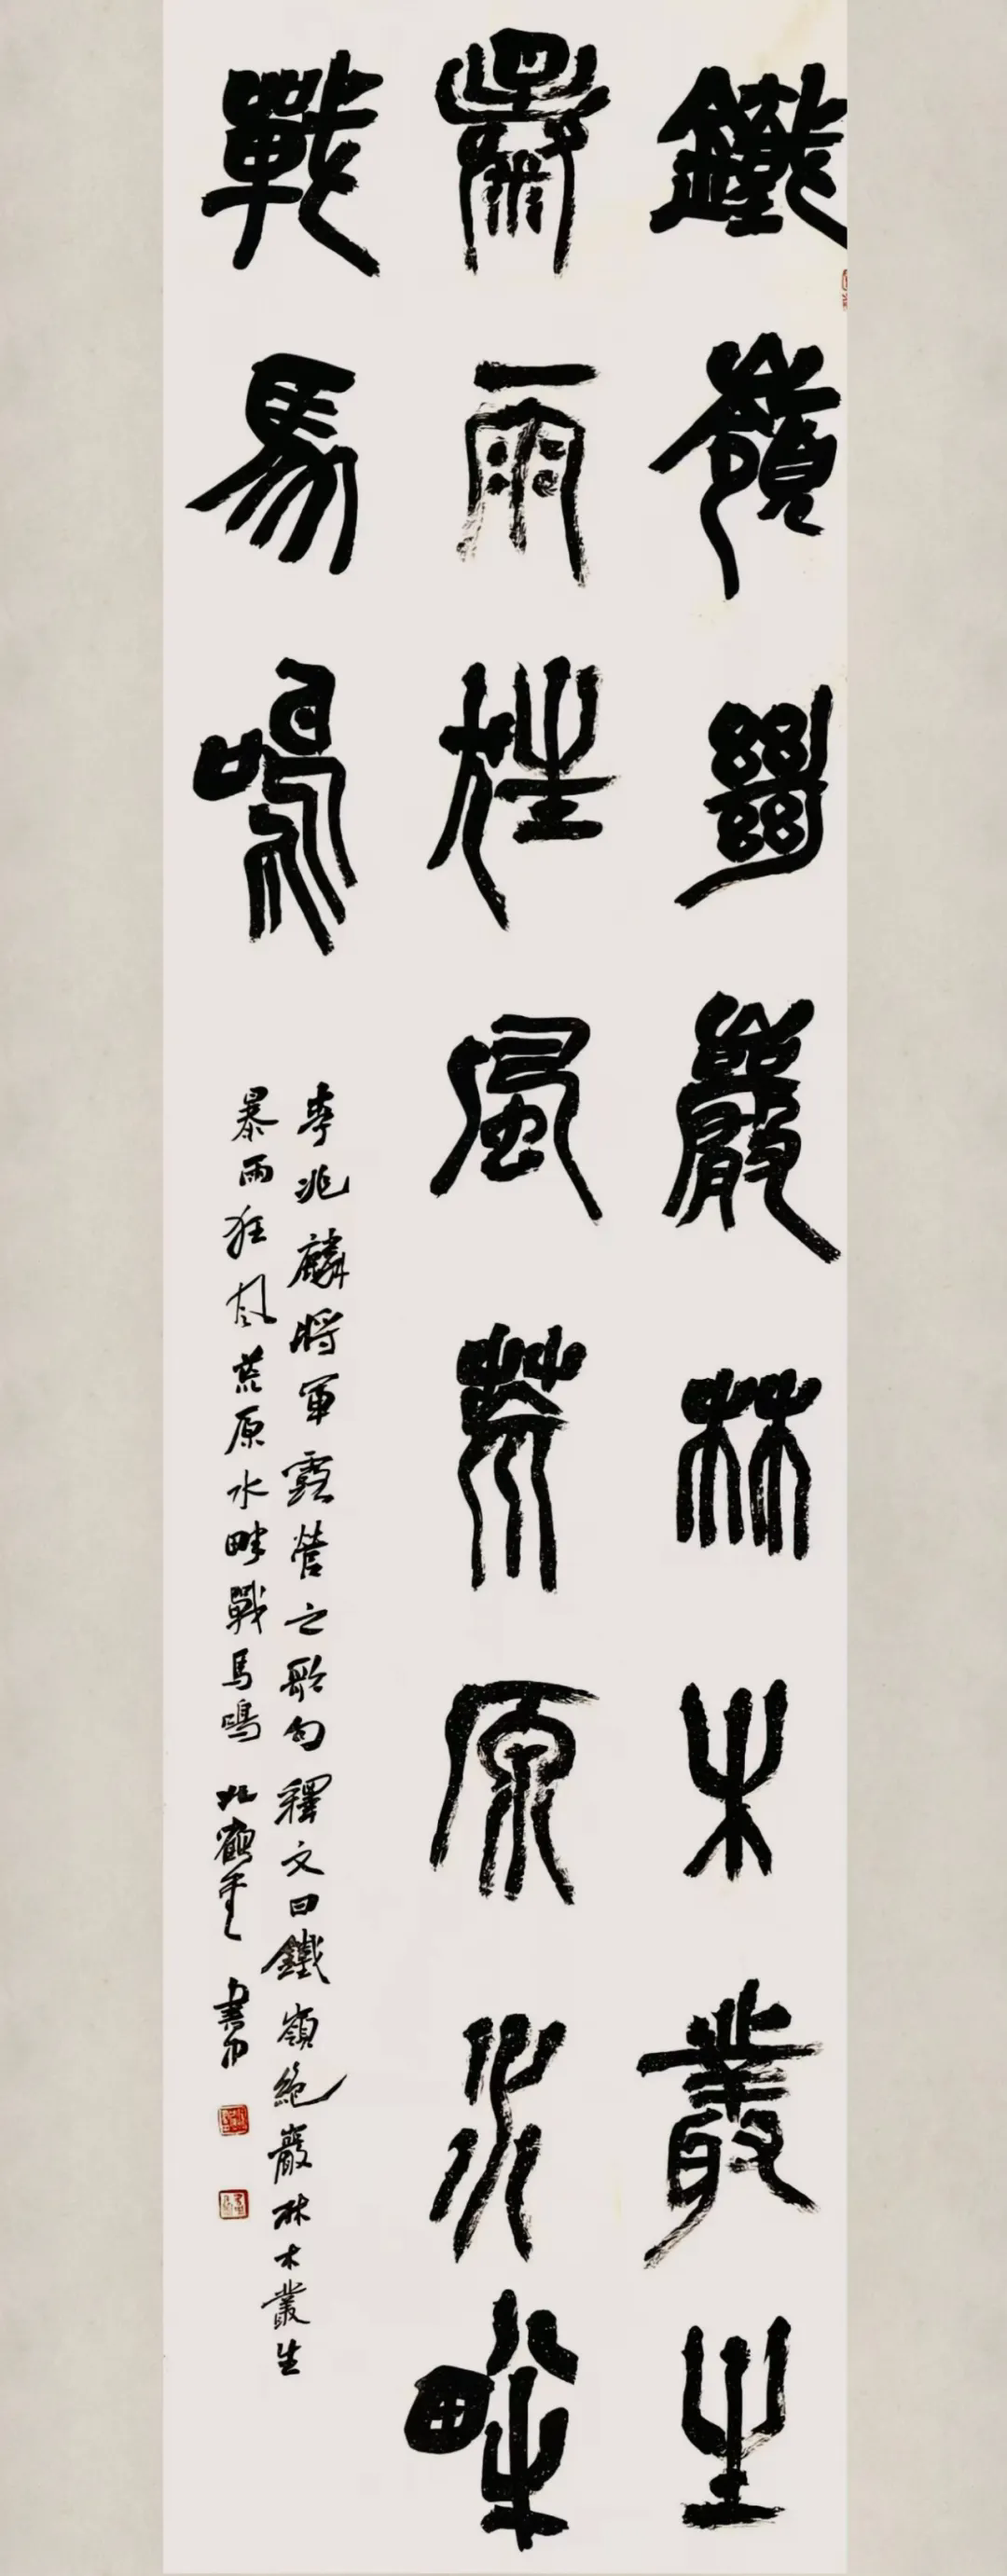 鐵嶺絕巖林木叢生
暴雨狂風荒原水畔
戰馬鳴
李兆麟將軍露營之歌句釋文曰鐵嶺絕巖林木叢生
暴雨狂風荒原水畔戰馬鳴 北鶴 書